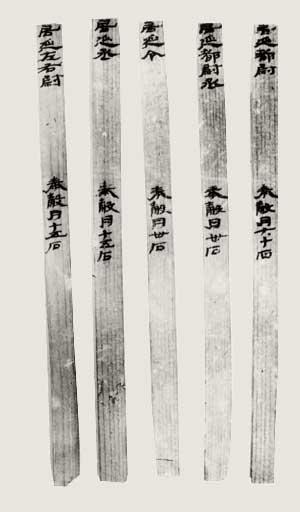 居延都尉
奉穀月六十石
居延都尉丞
奉穀月卅石
居延令
奉穀月卅石
居延丞
奉穀月十五石
居延左右尉
奉穀月十五石